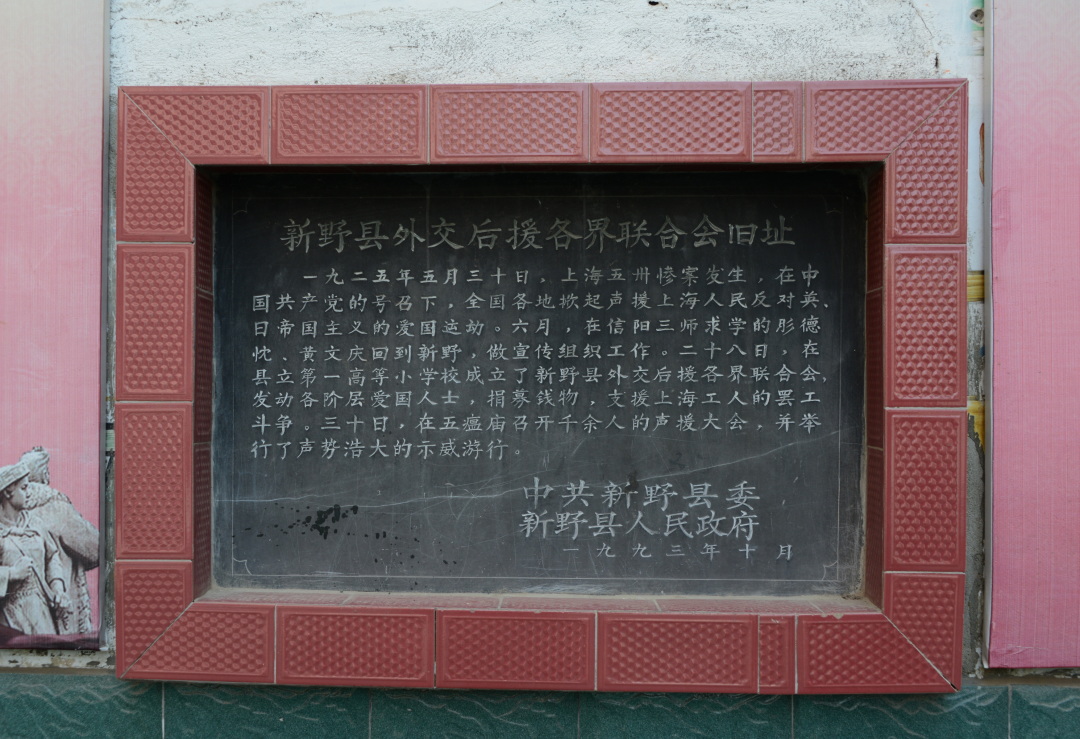 新野县外交后援各界联合会旧址
一九二五年五月三十日。上海五卅惨案发生，在中
国共产党的号召下，全国各地掀起声援上海人民反对英、
日帝国主义的爱国运动。六月，在信阳三师求学的彤德
忱、黄文庆回到新野，做宣传组织工作。二十八日，在
县立第一高等小学校成立了新野县外交后援各界联合会，
发动各阶层爱国人士，捐募钱物，支援上海工人的罢工
斗争。三十日，在五瘟庙召开千余人的声援大会，并举
行了声势浩大的示威游行。
中共新野县委
新野县人民政府
一九九三年十月